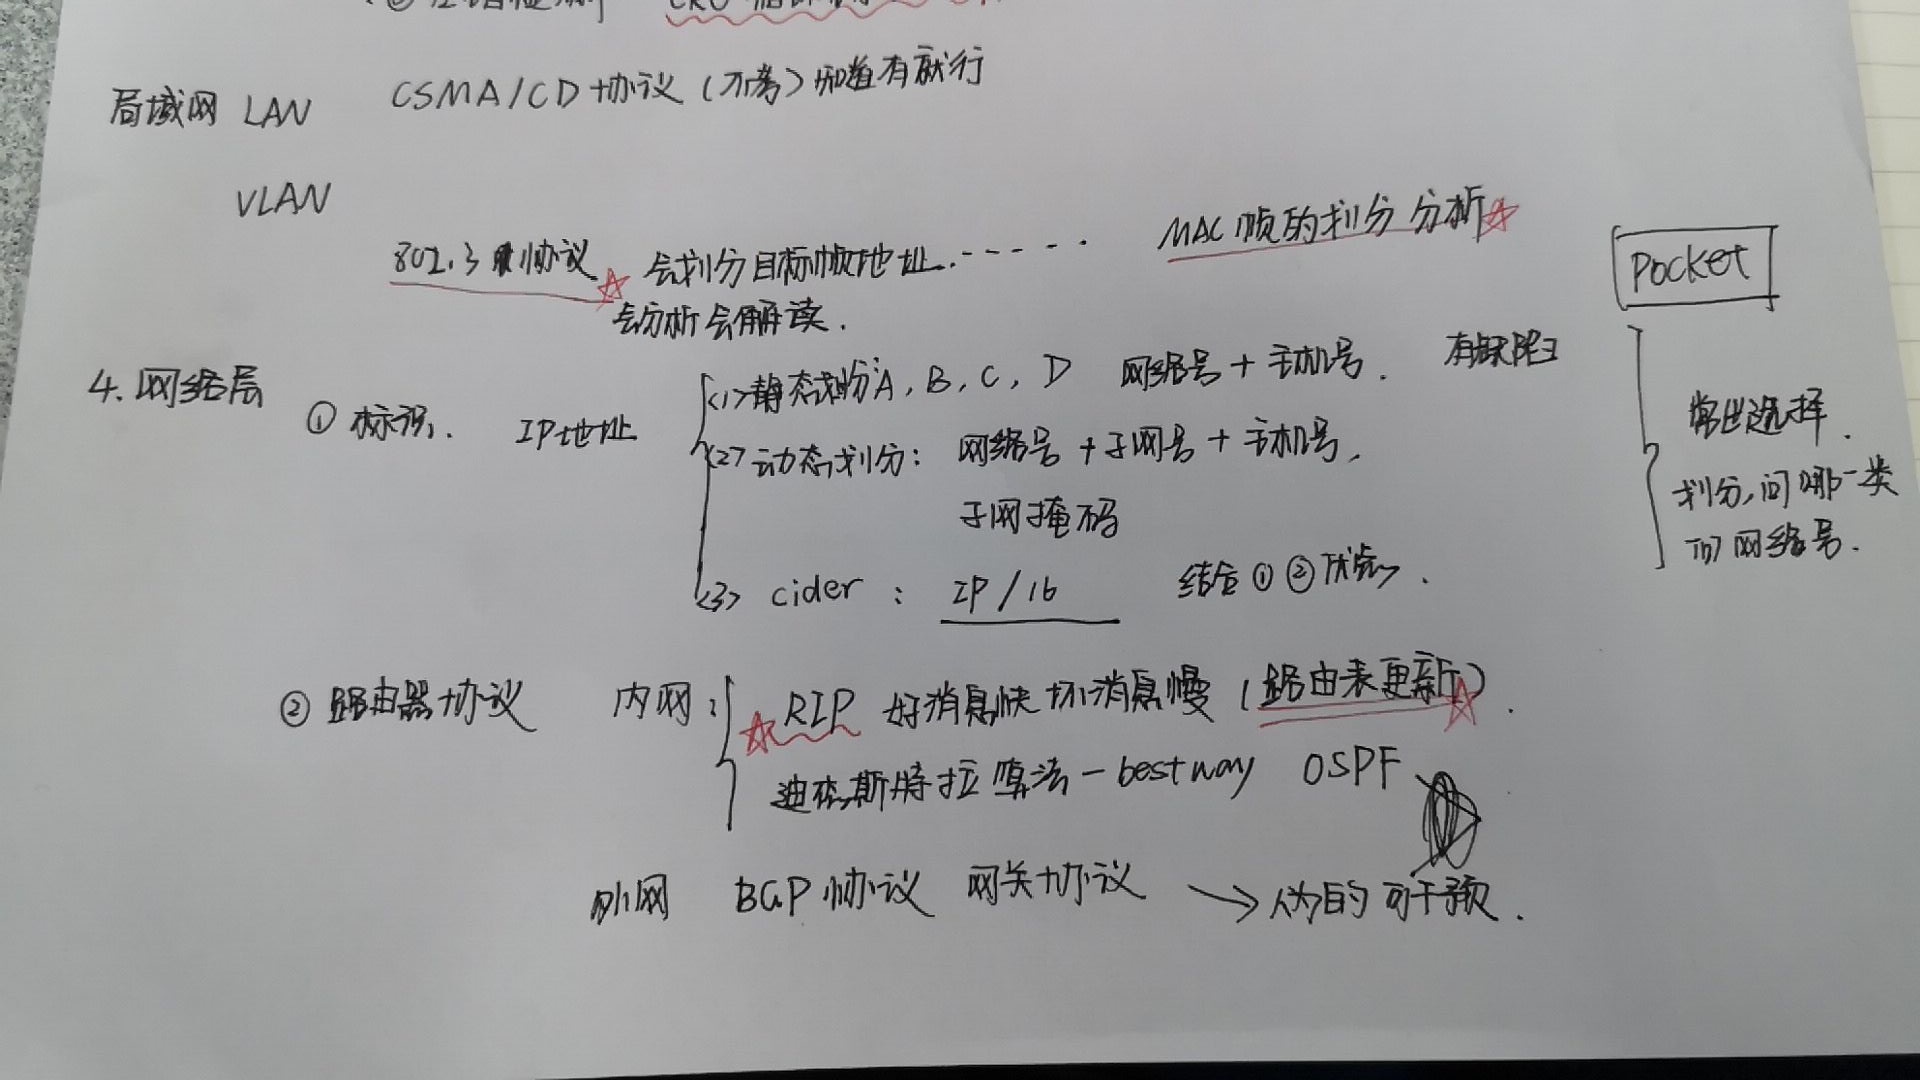 局域网 LAN CSMA/CD 协议 (不考) 知道有就行
VLAN
802.3 协议 会划分目标帧地址.----- MAC 帧的划分 分析☆
会分析会解读.
Pocket
4. 网络层
① 标识. IP地址
<1> 静态划分 A, B, C, D 网络号 + 主机号. 有缺陷
<2> 动态划分: 网络号 + 子网号 + 主机号,
子网掩码
<3> cider : IP / 16 结合 ① ② 优势.
常出选择.
划分,问哪一类
的网络号.
② 路由器协议 内网:
☆ RIP 好消息快 坏消息慢 (路由表更新)☆.
迪杰斯特拉算法 - best way OSPF
外网 BGP 协议 网关协议 → 人为的 可干预.